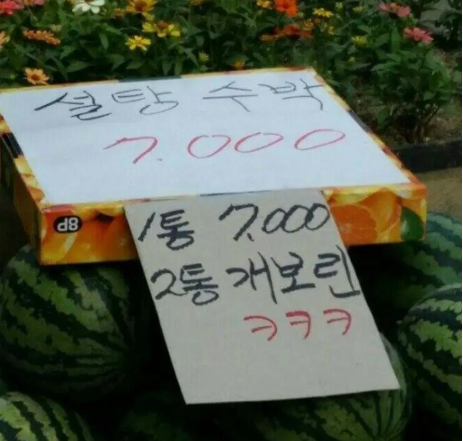 설탕 수박
7.000
8P
1통 7.000
2통 개보린
ㅋㅋㅋ